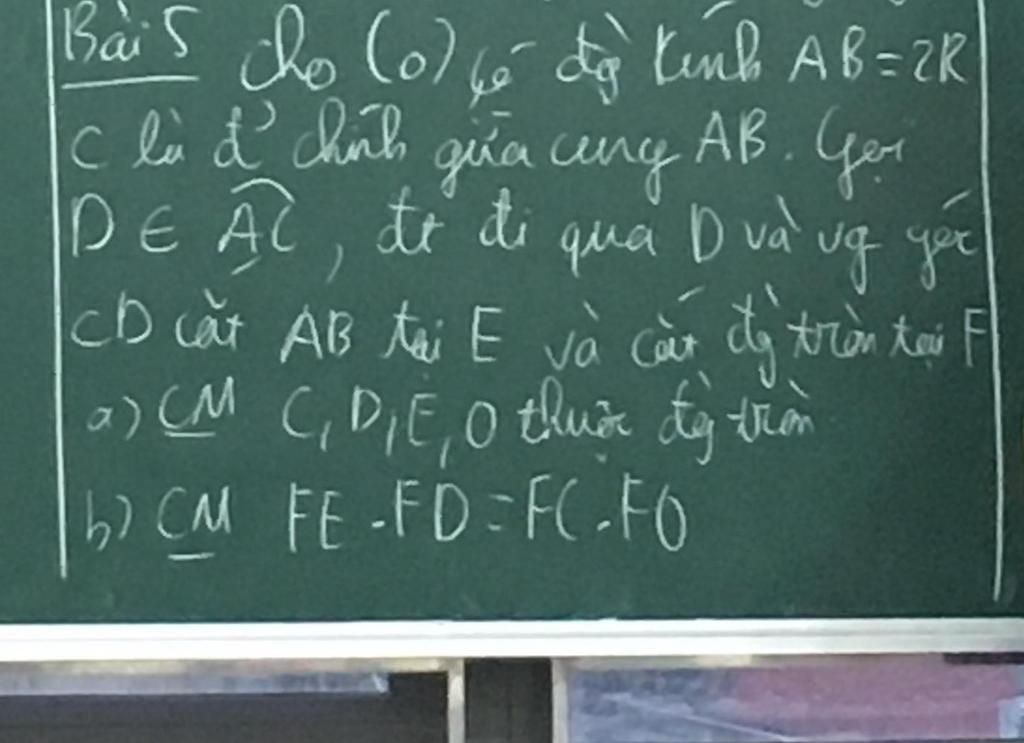 Bài 5 Cho (O) có đg` kính AB = 2R
C là đ' chính giữa cung AB. Gọi
D ∈ AC, đt đi qua D và vg góc
CD cắt AB tại E và cắt đg` tròn tại F
a) CM C, D, E, O thuộc đg` tròn
b) CM FE . FD = FC . FO